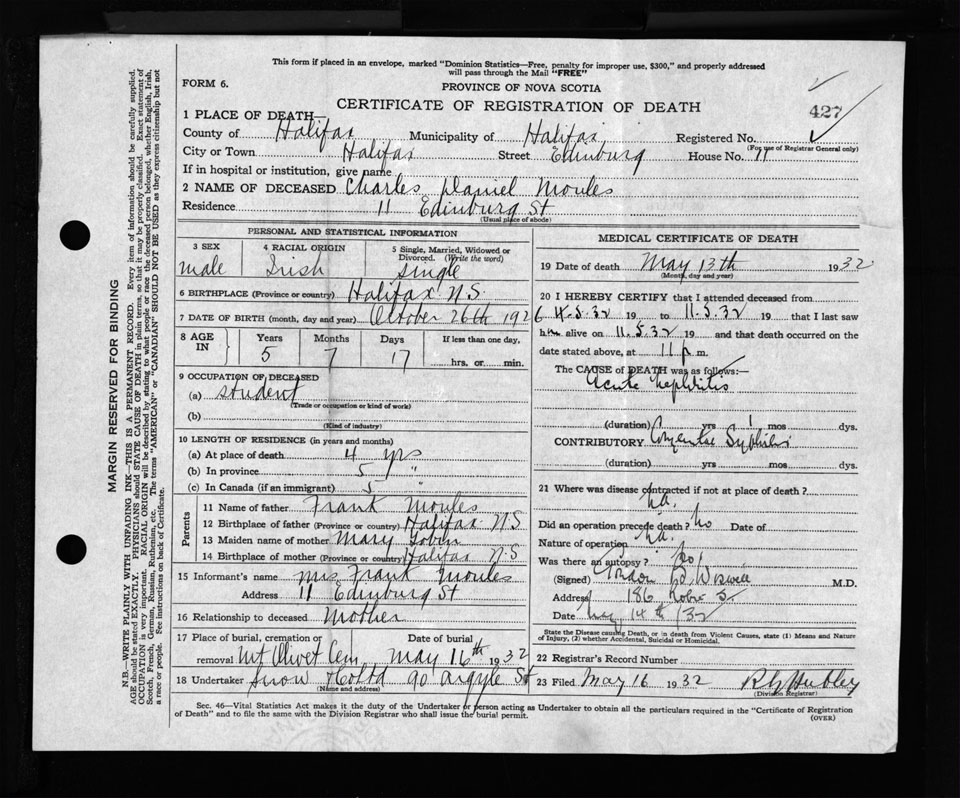 This form if placed in an envelope, marked "Dominion Statistics—Free, penalty for improper use, $300," and properly addressed
will pass through the Mail "FREE"
FORM 6.
PROVINCE OF NOVA SCOTIA
CERTIFICATE OF REGISTRATION OF DEATH
427
1 PLACE OF DEATH—
County of Halifax Municipality of Halifax Registered No.
(For use of Registrar General only)
City or Town Halifax Street Edinburg House No. 11
If in hospital or institution, give name
2 NAME OF DECEASED Charles Daniel Moules
Residence 11 Edinburg St
(Usual place of abode)
PERSONAL AND STATISTICAL INFORMATION
3 SEX 4 RACIAL ORIGIN 5 Single, Married, Widowed or Divorced. (Write the word)
male Irish single
6 BIRTHPLACE (Province or country) Halifax N.S
7 DATE OF BIRTH (month, day and year) October 26th 1926
8 AGE IN Years Months Days If less than one day,
5 7 17 hrs. or min.
9 OCCUPATION OF DECEASED
(a) student
(Trade or occupation or kind of work)
(b)
(Kind of industry)
10 LENGTH OF RESIDENCE (in years and months)
(a) At place of death 4 yrs
(b) In province 5 "
(c) In Canada (if an immigrant) 5 "
Parents
11 Name of father Frank Moules
12 Birthplace of father (Province or country) Halifax N S
13 Maiden name of mother Mary Tobin
14 Birthplace of mother (Province or country) Halifax N.S
15 Informant's name Mrs Frank Moules
Address 11 Edinburg St
16 Relationship to deceased Mother
17 Place of burial, cremation or removal Date of burial
Mt Olivet Cem May 16th 1932
18 Undertaker Snow & Co Ltd 90 Argyle St
(Name and address)
MEDICAL CERTIFICATE OF DEATH
19 Date of death May 13th 1932
(Month, day and year)
20 I HEREBY CERTIFY that I attended deceased from
4.5.32 19 to 11.5.32 19 that I last saw
him alive on 11.5.32 19 and that death occurred on the
date stated above, at 11 p m.
The CAUSE of DEATH was as follows:—
Acute nephritis
(duration) yrs 1 mos dys.
CONTRIBUTORY Congenital Syphilis
(duration) yrs mos dys.
21 Where was disease contracted if not at place of death?
na.
Did an operation precede death? no Date of
Nature of operation na.
Was there an autopsy? no
(Signed) Gordon Wiswell M.D.
Address 186 Robie St.
Date May 14th /32
State the Disease causing Death, or in death from Violent Causes, state (1) Means and Nature
of Injury, (2) whether Accidental, Suicidal or Homicidal.
22 Registrar's Record Number
23 Filed May 16 1932
(Division Registrar)
Sec. 46—Vital Statistics Act makes it the duty of the Undertaker or person acting as Undertaker to obtain all the particulars required in the "Certificate of Registration
of Death" and to file the same with the Division Registrar who shall issue the burial permit.
(OVER)
MARGIN RESERVED FOR BINDING
N.B.—WRITE PLAINLY WITH UNFADING INK—THIS IS A PERMANENT RECORD. Every item of information should be carefully supplied.
AGE should be stated EXACTLY. PHYSICIANS should STATE CAUSE OF DEATH in plain terms, so that it may be properly classified. Exact statement of
OCCUPATION is very important. RACIAL ORIGIN will be described by stating to what people or race the deceased person belonged, whether English, Irish,
Scotch, French, German, Russian, Ruthenian, etc. The terms "AMERICAN" or "CANADIAN" SHOULD NOT BE USED as they express citizenship but not
a race or people. See instructions on back of Certificate.